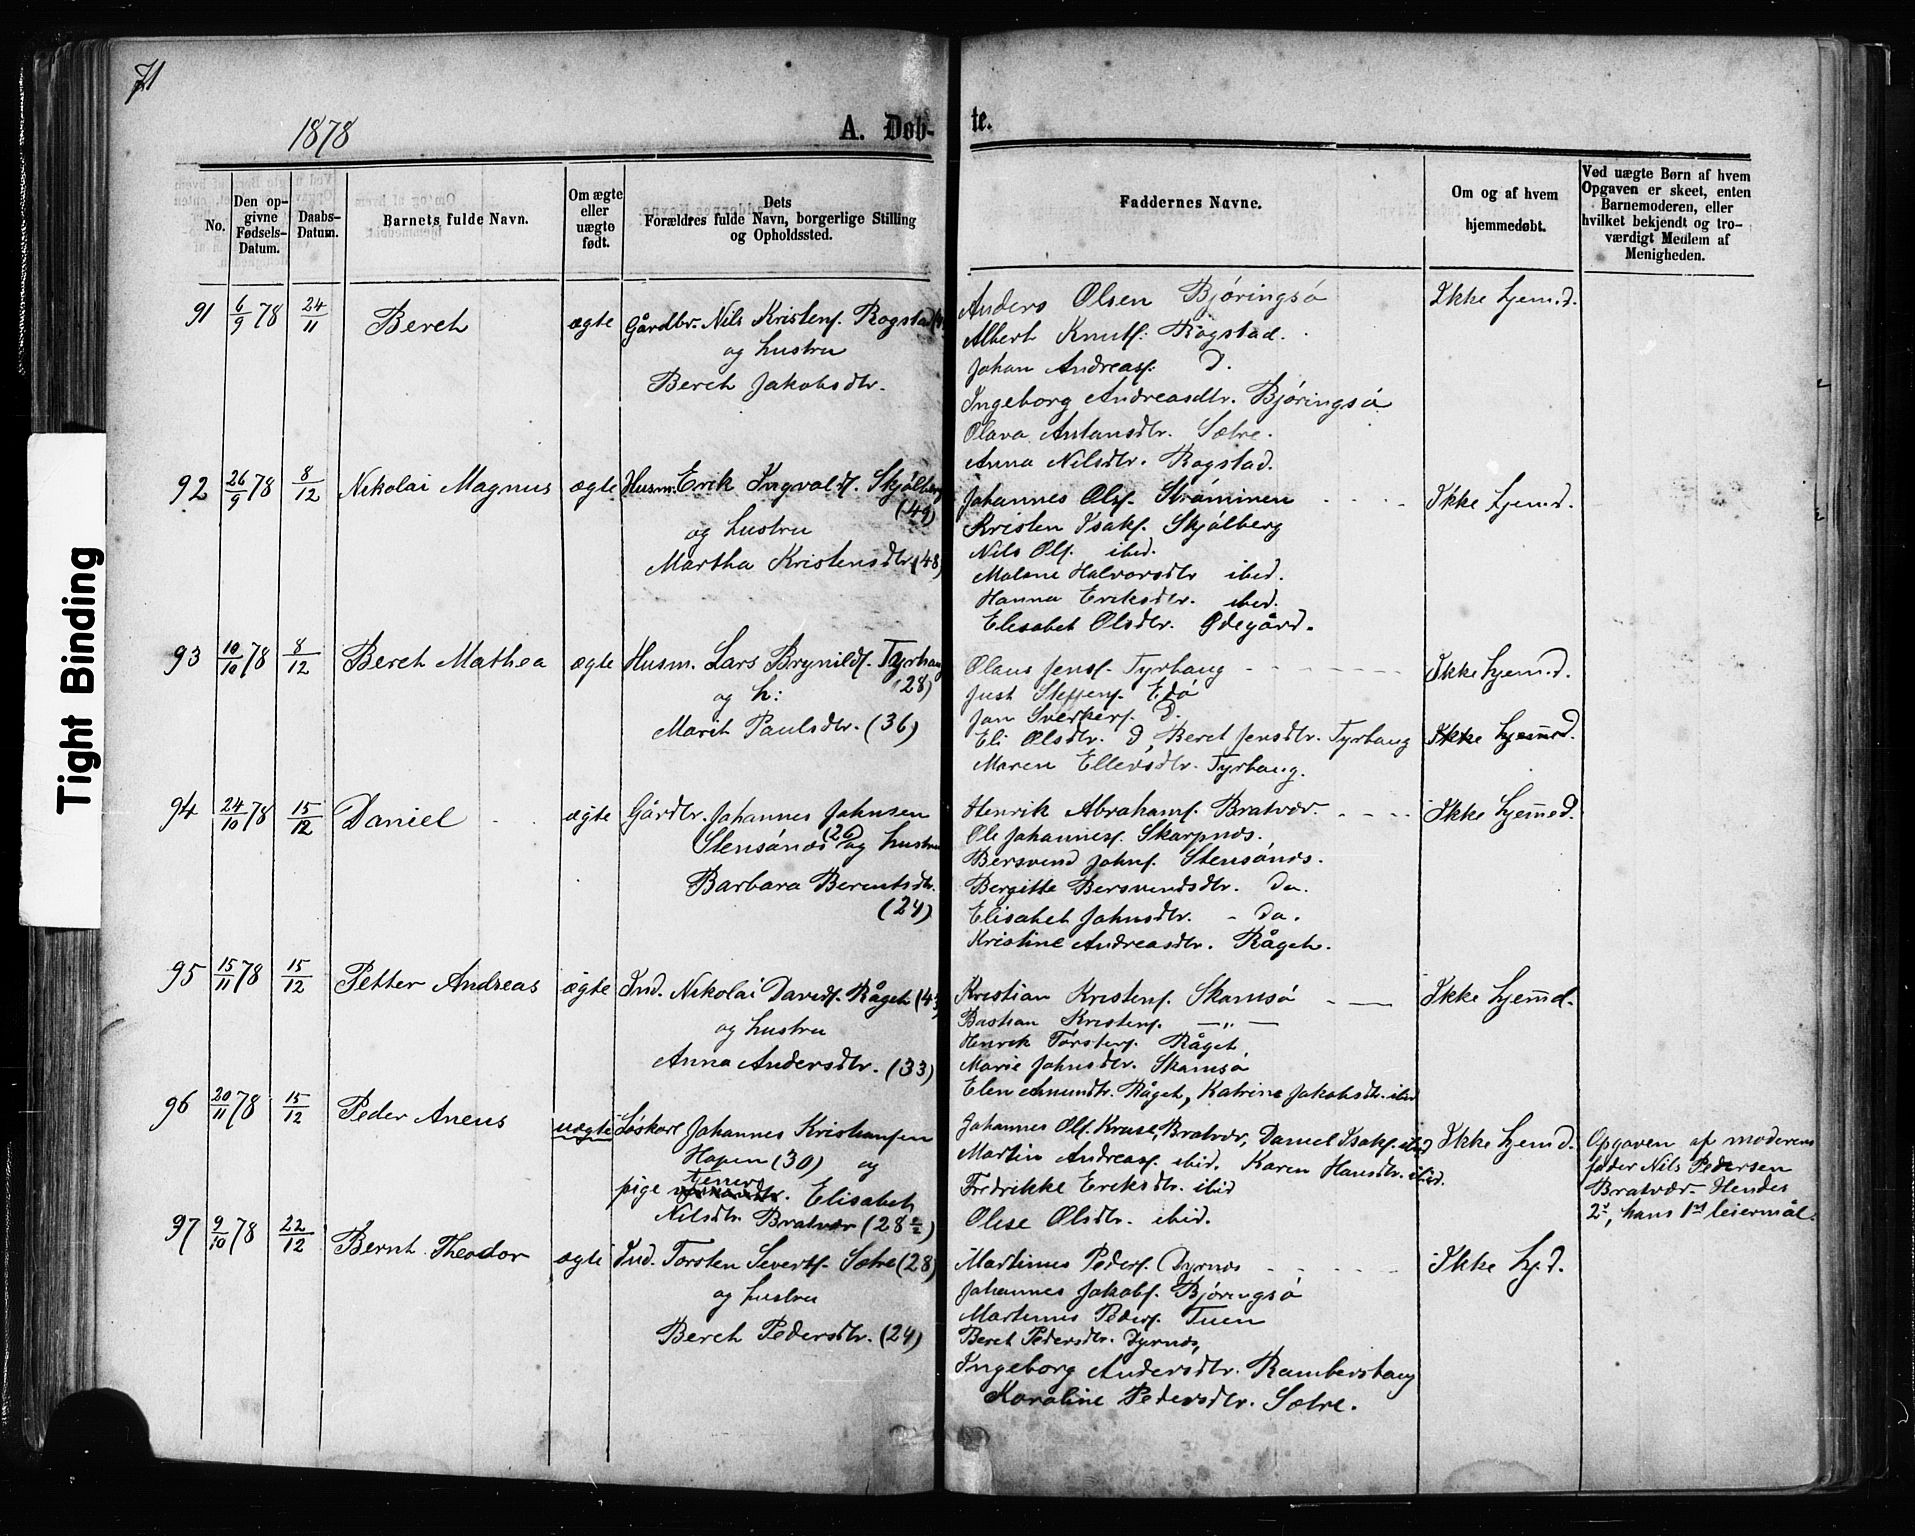 71
1878
A. Døb-
te.
No.
Den op-
givne
Fødsels-
Datum.
Daabs-
Datum.
Barnets fulde Navn.
Om ægte
eller
uægte
født.
Dets
Forældres fulde Navn, borgerlige Stilling
og Opholdssted.
Faddernes Navne.
Om og af hvem
hjemmedøbt.
Ved uægte Børn af hvem
Opgaven er skeet, enten
Barnemoderen, eller
hvilket bekjendt og tro-
værdigt Medlem af
Menigheden.
91 6/9 78 24/11 Beret ægte Gårdbr. Nils Kristens. Rogstad
og hustru
Beret Jakobsdtr.
Anders Olsen Bjøringsø
Albert Knuts. Rogstad.
Johan Andreass. D.
Ingeborg Andreasdtr. Bjøringsø
Olava Antonsdtr. Sætre.
Anna Nilsdtr. Rogstad.
Ikke hjem.d.
92 26/9 78 8/12 Nikolai Magnus ægte Husm. Erik Ingvalds. Skjølberg
(49)
og hustru
Martha Kristensdtr. (48)
Johannes Ols. Strømmen
Kristen Isaks. Skjølberg
Nils Ols. ibid.
Malene Halvorsdtr ibid.
Hanna Eriksdtr. ibid.
Elisabet Olsdtr. Ødegård.
Ikke hjem.d.
93 10/10 78 8/12 Beret Mathea ægte Husm. Lars Brynilds. Tyrhaug
(28)
og h:
Marit Paulsdtr. (36)
Olaus Jens. Tyrhaug
Just Steffens. Edø
Jan Sverkers. D.
Eli Olsdtr. D, Beret Jensdtr. Tyrhaug
Maren Ellevsdtr. Tyrhaug.
Ikke hjem.d.
Ikke hjemmed.
94 24/10 78 15/12 Daniel ægte Gårdbr. Johannes Johnsen
Stensønes (26) og hustru
Barbara Berentsdtr.
(24)
Henrik Abrahams. Bratvær.
Ole Johanness. Skarpnes.
Bersvend Johns. Stensønes.
Bergitte Bersvendsdtr. Do.
Elisabet Johnsdtr. - Do.
Kristine Andreasdtr. Råget.
Ikke hjemmed.
95 15/11 78 15/12 Petter Andreas ægte Ind. Nikolai Davids. Råget (43)
og hustru
Anna Andersdtr. (33)
Kristian Kristens. Skamsø
Bastian Kristens. — „ —
Henrik Torstens. Råget
Marie Johnsdtr. Skamsø
Elen Amundtr. Råget, Katrine Jakobsdtr. ibid
Ikke hjemmd.
96 20/11 78 15/12 Peder Aneus uægte Løskarl Johannes Kristiansen
Hopen (30) og
tjeneste
pige Elisabet
Nilsdtr. Bratvær (28 1/2)
Johannes Ols. Kruse, Bratvær, Daniel Isaks. ibid
Martin Andreass. ibid. Karen Hansdtr. ibid.
Fredrikke Eriksdtr. ibid
Olise Olsdtr. ibid.
Ikke hjem.d.
Opgaven af moderens
fader Nils Pedersen
Bratvær. Hendes
2det, hans 1ste leiermål.
97 9/10 78 22/12 Bernt Theodor ægte Ind. Torsten Severts. Sætre (28)
og hustru
Beret Pedersdtr. (24)
Martinus Peders. Dyrnes
Johannes Jakobs. Bjøringsø
Martinus Peders. Tuen
Beret Pedersdtr. Dyrnes,
Ingeborg Andersdtr. Rambershaug
Karoline Pedersdtr. Sætre.
Ikke hj.d.
Tight Binding